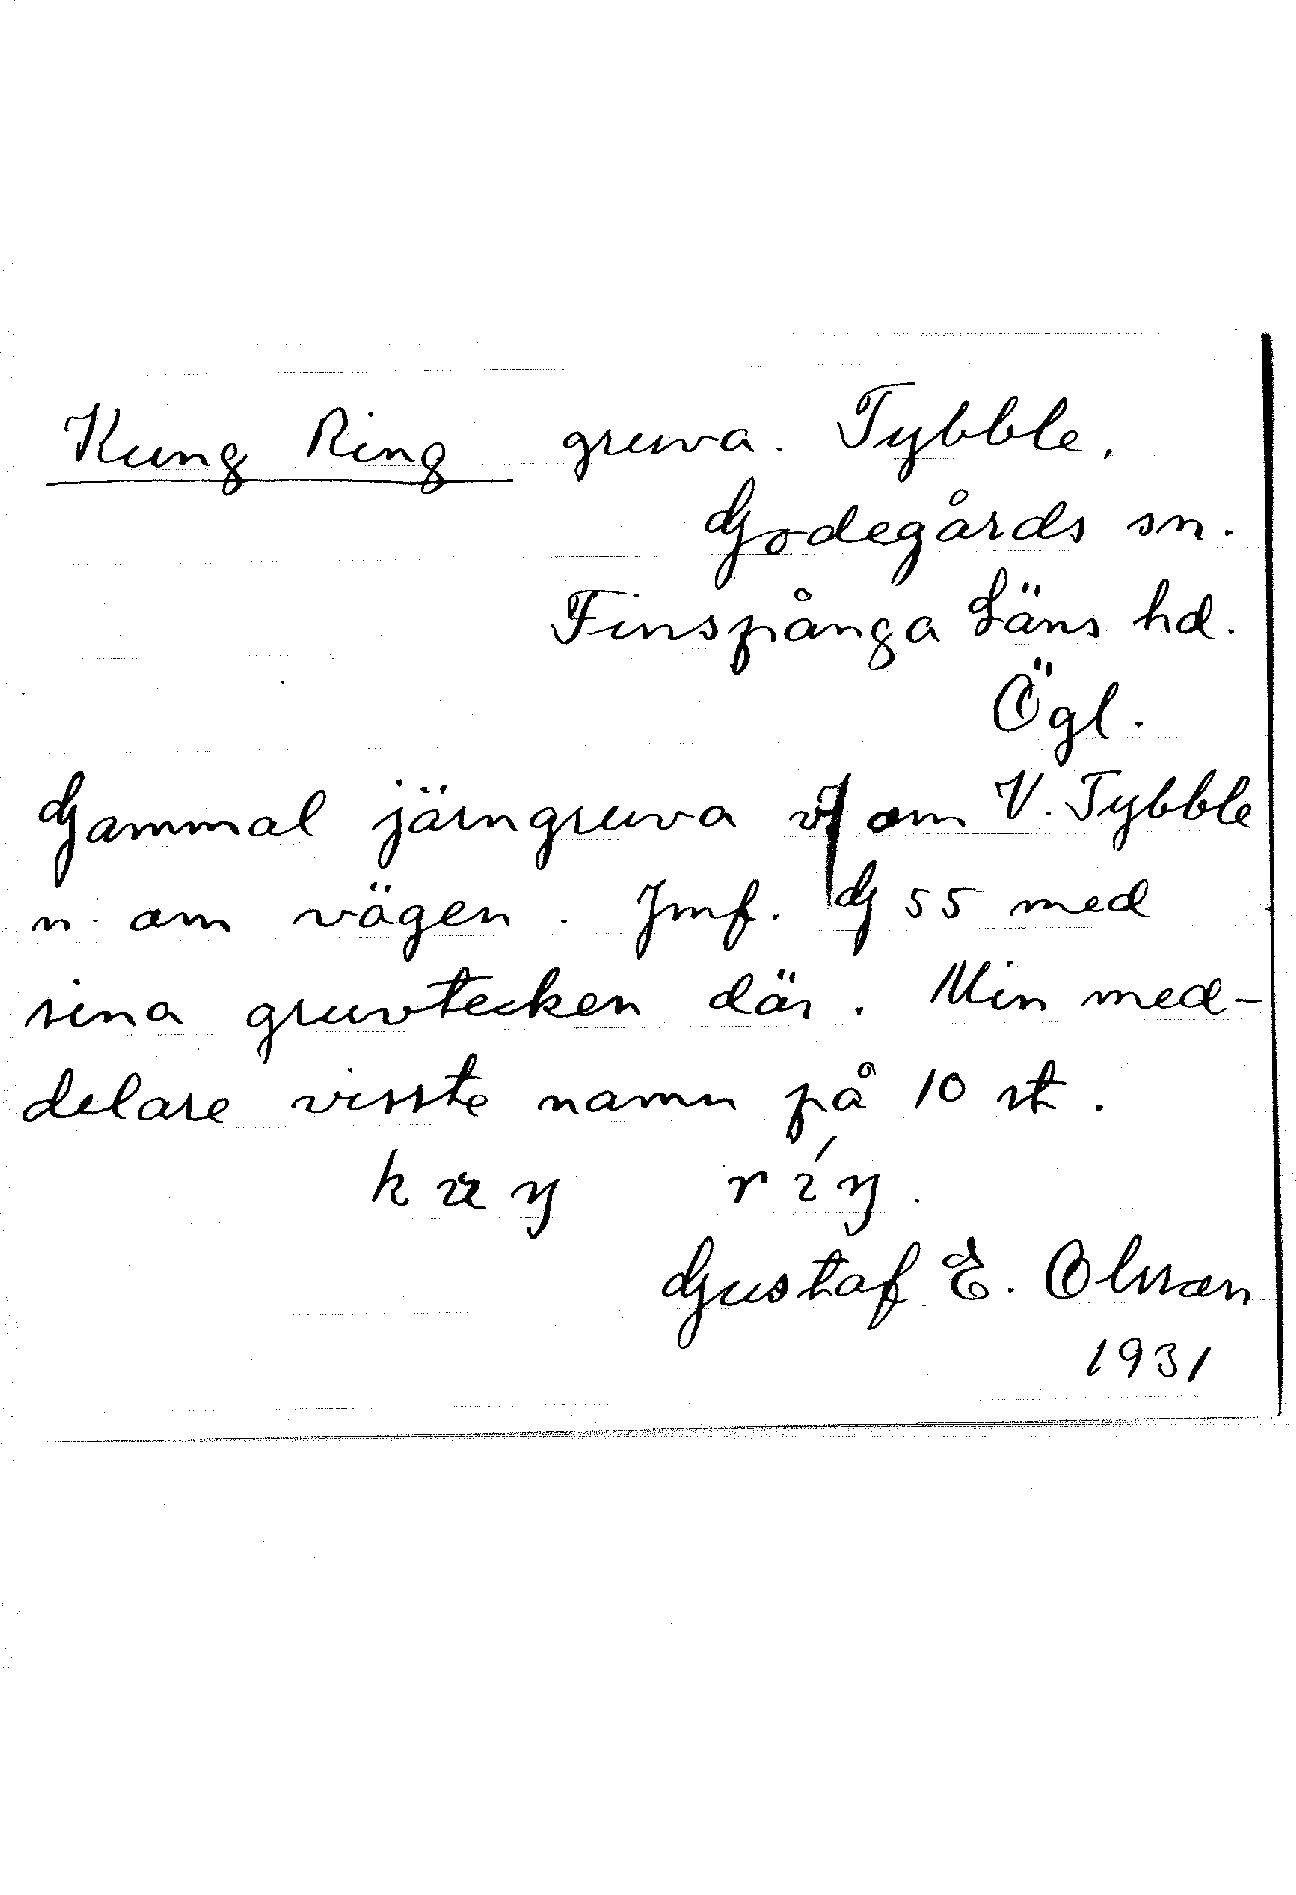 Kung Ring gruva. Tybble.
Godegårds sn.
Finspånga Läns hd.
Ögl.
Gammal järngruva om V. Tybble
n. om vägen. Jmf. G 55 med
sina gruvtecken där. Min med-
delare visste namn på 10 st.
Gustaf E. Olsson
1931